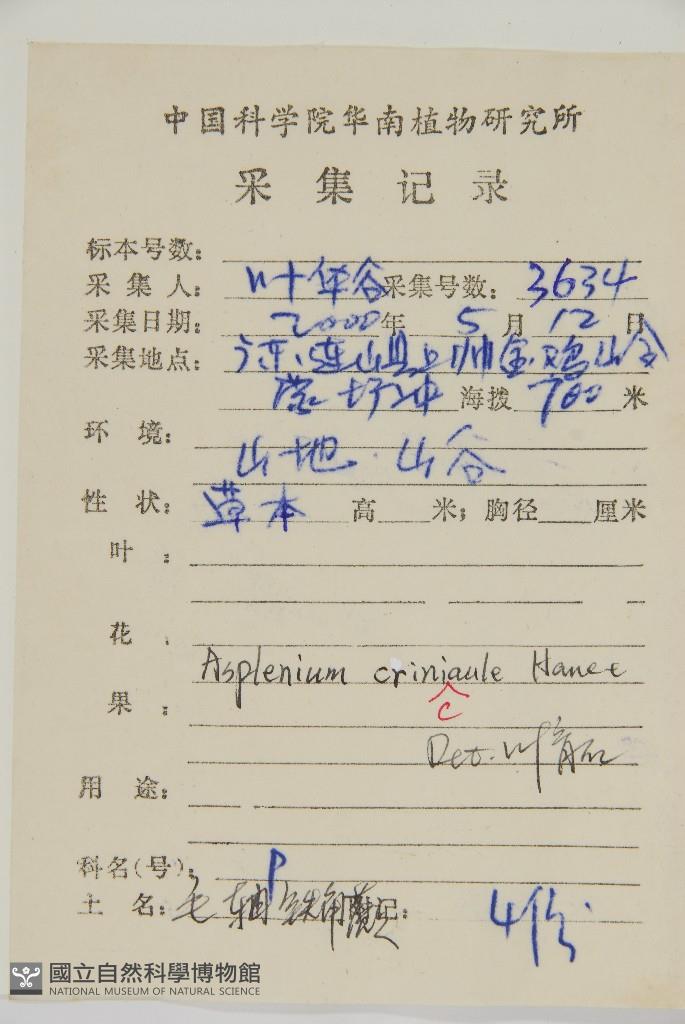 中国科学院华南植物研究所
采集记录
标本号数:
采集人: 叶华谷 采集号数: 3634
采集日期: 2000年 5月 12日
采集地点: 连山县上帅 鸡山
海拔 700 米
环境:
山地·山谷
性状: 草本 高 米; 胸径 厘米
叶:
花:
Asplenium criniaule Hance
c
果:
Det. 叶育石
用途:
科名(号): P
土名: 毛轴铁角蕨 记: 4份
國立自然科學博物館
NATIONAL MUSEUM OF NATURAL SCIENCE